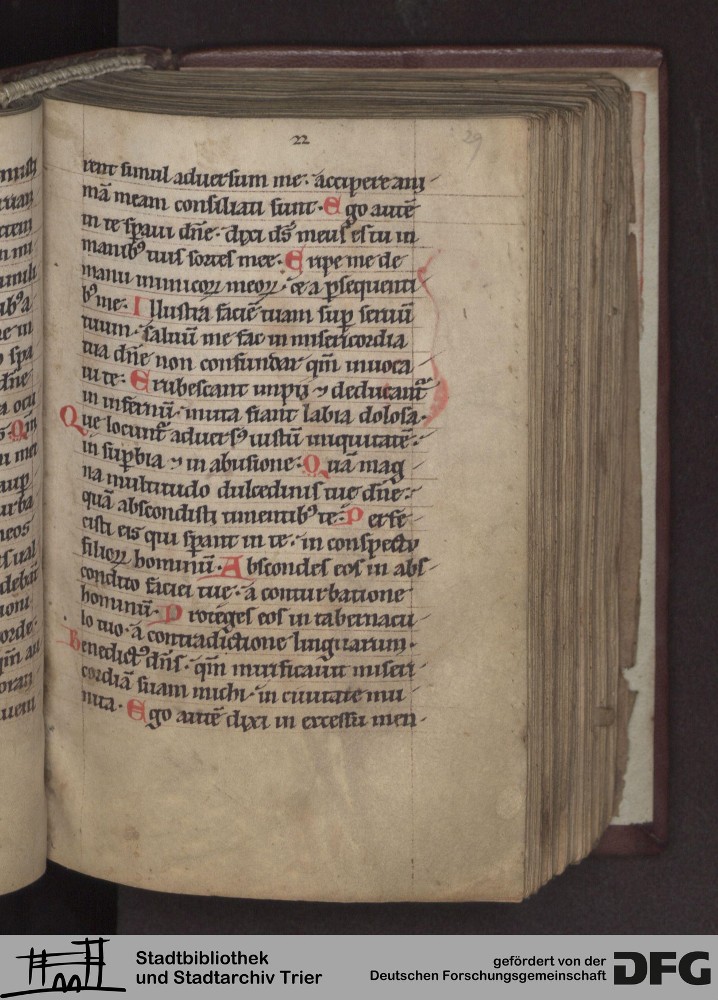 22
29
rent simul aduersum me· accipere ani-
mā meam consiliati sunt· Ego autē
in te sp̄aui dn̄e· dixi ds̄ meus es tu in
manibꝰ tuis sortes mee· Eripe me de
manu inimicoꝝ meoꝝ· ⁊ a ꝑsequenti-
bꝰ me· Illustra faciē tuam suꝑ seruū
tuum· saluū me fac in misericordia
tua dn̄e non confundar qm̄ inuoca
ui te· Erubescant impij ⁊ deducant᷑
in infernū· muta fiant labia dolosa·
Que locunt᷑ aduersꝰ iustū iniquitatē·
in suꝑbia ⁊ in abusione· Quā mag
na multitudo dulcedinis tue dn̄e·
quā abscondisti timentibꝰ te· Perfe
cisti eis qui sꝑant in te· in conspectu
filioꝝ hominū· Abscondes eos in abs-
condito faciei tue· a conturbatione
hominū· Proteges eos in tabernacu-
lo tuo· a contradictione linguarum·
Benedictꝰ dn̄s· qm̄ mirificauit miseri-
cordiā suam michi· in ciuitate mu-
nita· Ego autē dixi in excessu men-
Stadtbibliothek
und Stadtarchiv Trier
gefördert von der
Deutschen Forschungsgemeinschaft
DFG